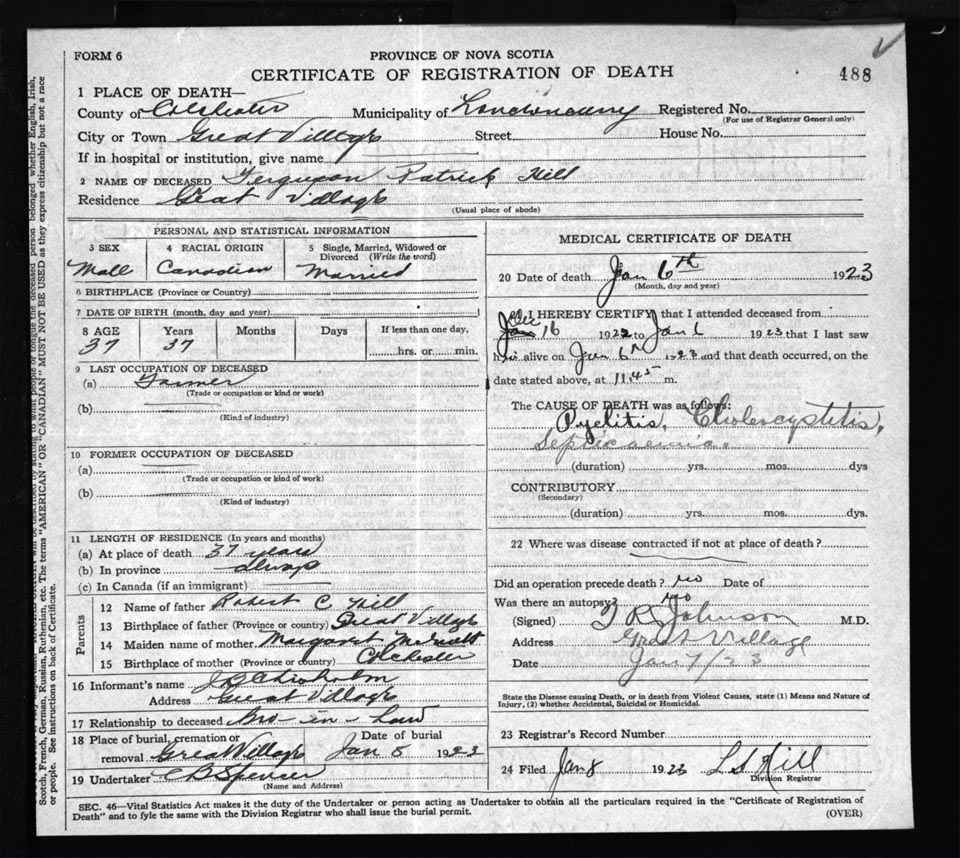 FORM 6
PROVINCE OF NOVA SCOTIA
CERTIFICATE OF REGISTRATION OF DEATH
488
1 PLACE OF DEATH—
County of Colchester Municipality of Londonderry Registered No.
(For use of Registrar General only)
City or Town Great Village Street House No.
If in hospital or institution, give name
2 NAME OF DECEASED Ferguson Patrick Hill
Residence Great Village
(Usual place of abode)
PERSONAL AND STATISTICAL INFORMATION
3 SEX 4 RACIAL ORIGIN 5 Single, Married, Widowed or Divorced (Write the word)
Male Canadian Married
6 BIRTHPLACE (Province or Country)
7 DATE OF BIRTH (month, day and year)
8 AGE Years Months Days If less than one day,
37 37 hrs. or min.
9 LAST OCCUPATION OF DECEASED
(a) Farmer
(Trade or occupation or kind or work)
(b)
(Kind of industry)
10 FORMER OCCUPATION OF DECEASED
(a)
(Trade or occupation or kind of work)
(b)
(Kind of industry)
11 LENGTH OF RESIDENCE (In years and months)
(a) At place of death 37 years
(b) In province always
(c) In Canada (if an immigrant)
Parents
12 Name of father Robert C Hill
13 Birthplace of father (Province or country) Great Village
14 Maiden name of mother Margaret
15 Birthplace of mother (Province or country) Colchester
16 Informant's name Chisholm
Address Great Village
17 Relationship to deceased Bro-in-Law
18 Place of burial, cremation or removal Great Village Date of burial Jan 8 1923
19 Undertaker C B Spencer
(Name and Address)
MEDICAL CERTIFICATE OF DEATH
20 Date of death Jan 6th 1923
(Month, day and year)
I HEREBY CERTIFY that I attended deceased from
Dec 16 1922 to Jan 6 1923 that I last saw
him alive on Jan 6th 1923 and that death occurred, on the
date stated above, at 11.45 m.
The CAUSE OF DEATH was as follows:
Pyelitis, Cholecystitis,
Septicaemia.
(duration) yrs. mos. dys
CONTRIBUTORY
(Secondary)
(duration) yrs. mos. dys.
22 Where was disease contracted if not at place of death?
Did an operation precede death? no Date of
Was there an autopsy? no
(Signed) T R Johnson M.D.
Address Great Village
Date Jan 7/23
State the Disease causing Death, or in death from Violent Causes, state (1) Means and Nature of
Injury, (2) whether Accidental, Suicidal or Homicidal.
23 Registrar's Record Number
24 Filed Jan 8 1923 L S Hill
Division Registrar
SEC. 46—Vital Statistics Act makes it the duty of the Undertaker or person acting as Undertaker to obtain all the particulars required in the "Certificate of Registration of
Death" and to fyle the same with the Division Registrar who shall issue the burial permit.
(OVER)
whether English, Irish,
Scotch, French, German, Russian, Ruthenian, etc. The terms "AMERICAN" OR "CANADIAN" MUST NOT BE USED as they express citizenship but not a race
or people. See instructions on back of Certificate.